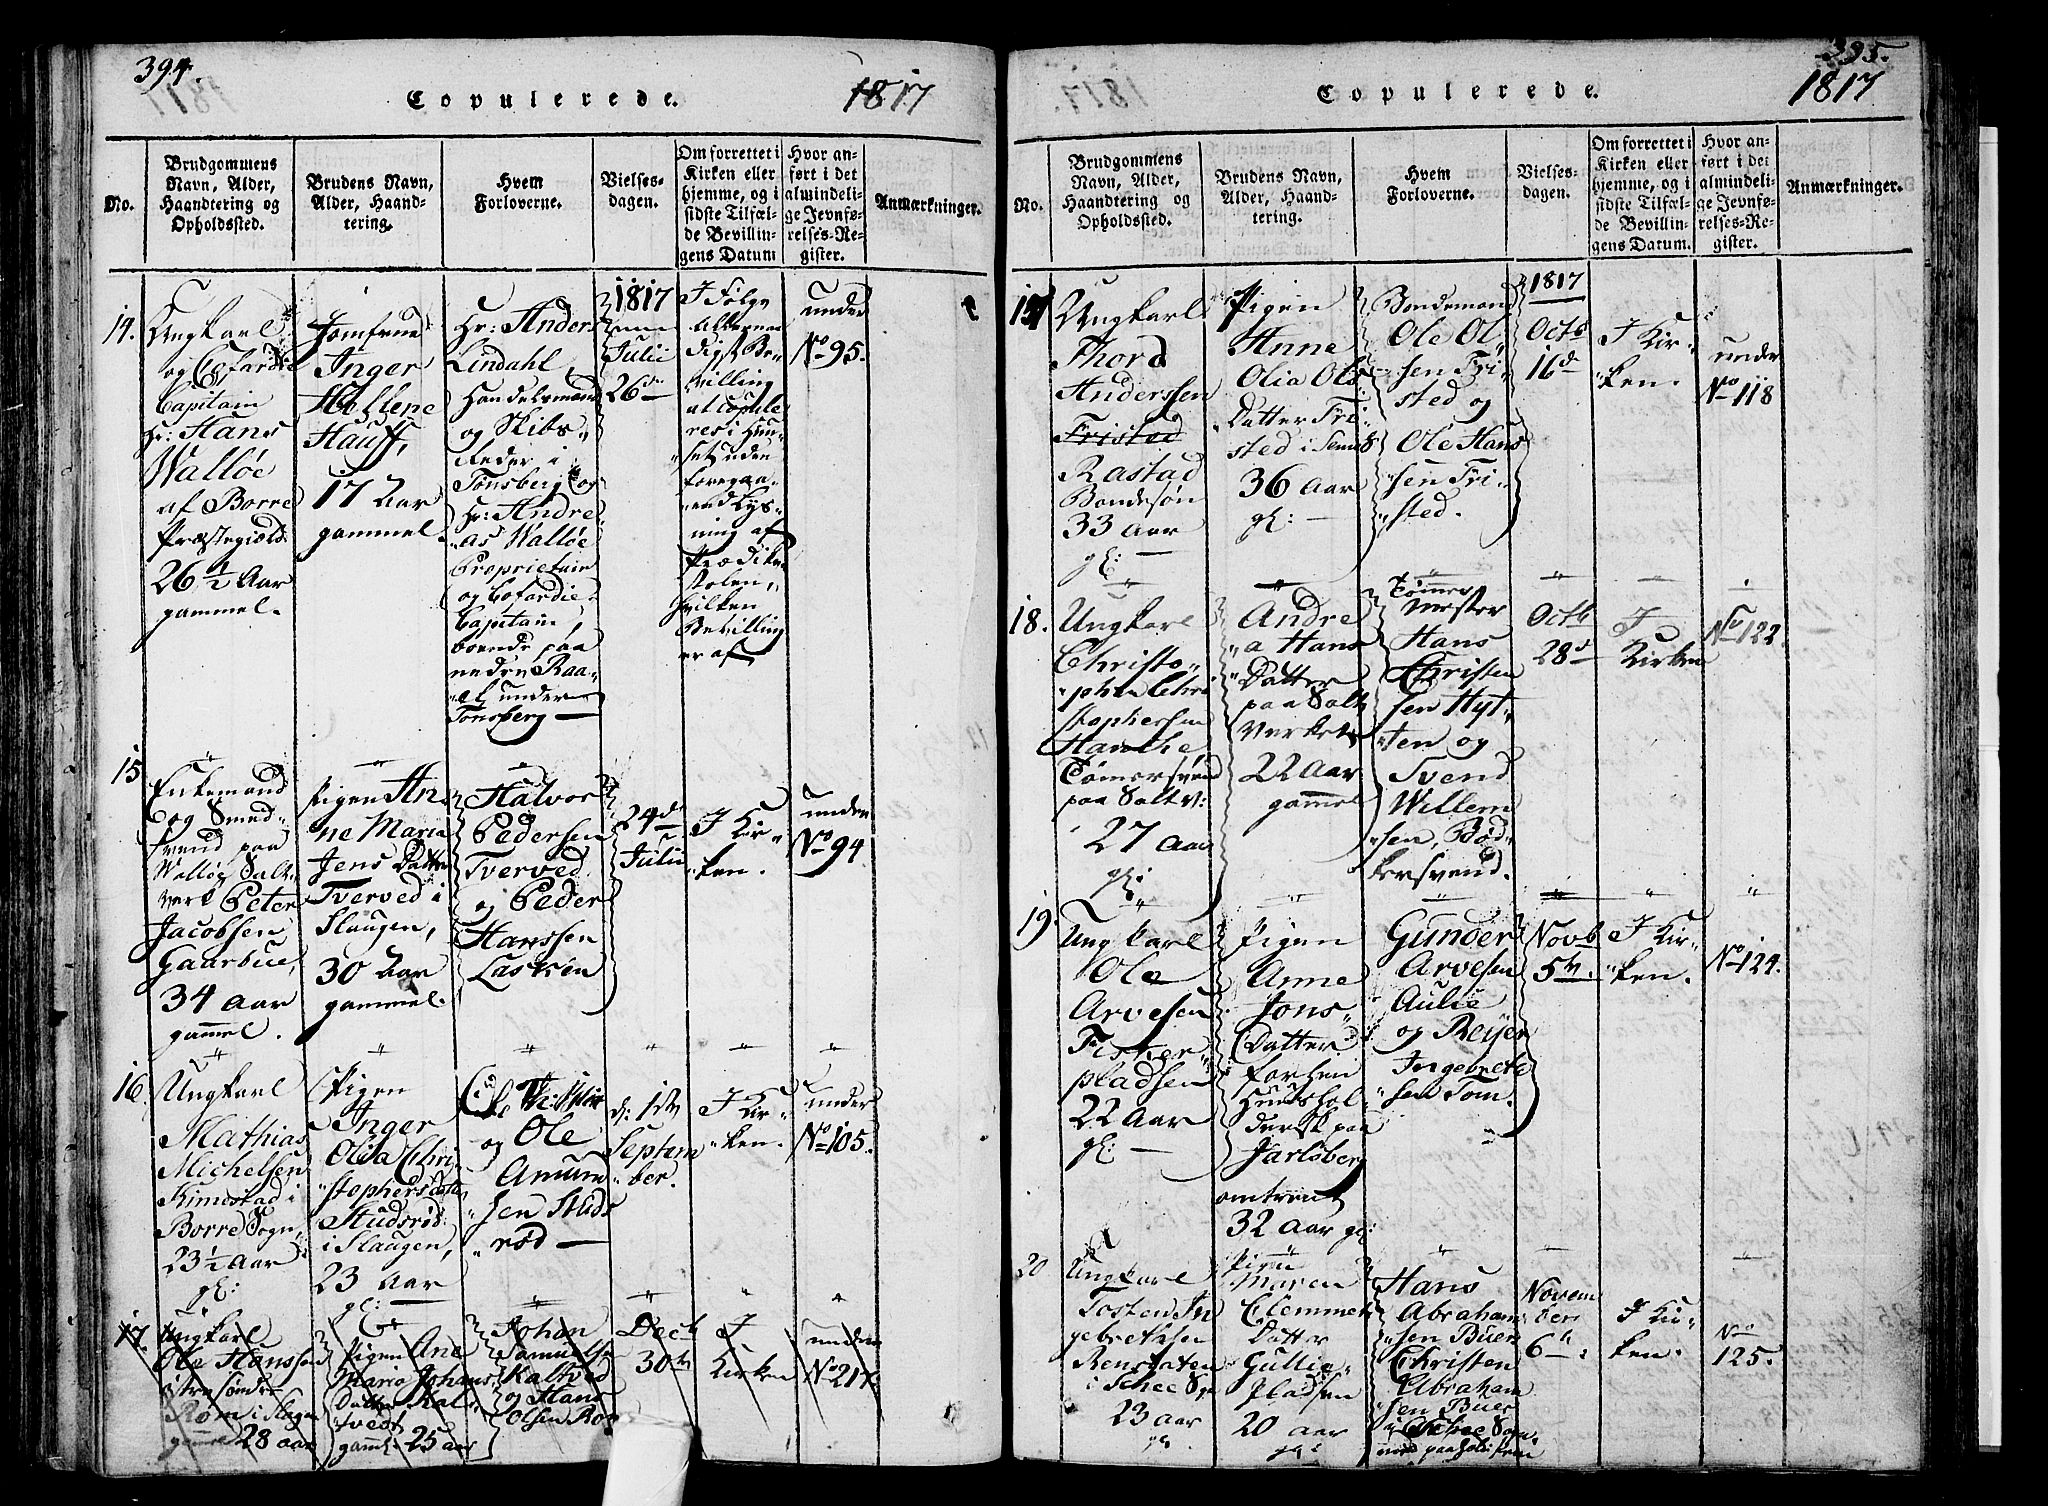 394.
Copulerede.
1817
No.
Brudgommens
Navn, Alder,
Haandtering og
Opholdssted.
Brudens Navn,
Alder, Haand-
tering.
Hvem
Forloverne.
Vielses-
dagen.
Om forrettet i
Kirken eller
hjemme, og i
sidste Tilfæl-
de Bevillin-
gens Datum
Hvor an-
ført i det
almindeli-
ge Jevnfø-
relses-Re-
gister.
Anmærkninger.
14.
Ungkarl
og Cofardie
Capitain
Hr: Hans
Walløe
af Borre
Præstegield
26 ½ Aar
gammel.
Jomfrue
Inger
Hellene
Hauff,
17 Aar
gammel.
Hr: Anders
Lindahl
Handelsmand
og Skibs-
Reder i
Tønsberg og
Hr: Andre
as Walløe
Proprietair
og Cofardie-
Capitain,
boende paa
nedre Raa-
el under
Tønsberg
1817
Julii
26de
I Følge
Allernaa
digst Be-
villing
at copule
res i Huu-
set uden
foregaa-
ende Lys-
ning af
Prædike
stolen,
hvilken
Bevilling
er af
under
No 95.
15
Enkemand
og Smed-
svend paa
Walløe Salt-
verk Peter
Jacobsen
Gaarbue,
34 Aar
gammel.
Pigen An-
ne Maria
Jens Datter
Tverved i
Slaugen,
30 Aar
gammel.
Halvor
Pedersen
Tverved
og Peder
Hanssen
Lasken
24de
Julii
I Kir-
ken.
under
No 94
16
Ungkarl
Mathias
Michelsen
Kimestad i
Borre Sogn,
23 ½ Aar
gl:
Pigen
Inger
Olia Chri-
stophersdatter
Studsrød
i Slaugen,
23 Aar
gl:
og Ole
Amun-
sen Studs
rød
d: 1ste
Septem
ber.
I Kir-
ken.
under
No 105.
17.
Ungkarl
Ole Hanssen
Rom i Slagen
gaml 28 aar
Pigen Ane
Maria Johans
Datter Kal-
tvedt
gaml: 25 aar
Johan
Samuelsen
Kaltved
og Hans
Olsen Rom
Decb
30te
I
Kirken
under
No 217
395.
Copulerede.
1817
No.
Brudgommens
Navn, Alder,
Haandtering og
Opholdssted.
Brudens Navn,
Alder, Haand-
tering.
Hvem
Forloverne.
Vielses-
dagen.
Om forrettet i
Kirken eller
hjemme, og i
sidste Tilfæl-
de Bevillin-
gens Datum.
Hvor an-
ført i det
almindeli-
ge Jevnfø-
relses-Re-
gister.
Anmærkninger.
17
Ungkarl
Thord
Anderssen
Fristad
Rastad
Bondesøn
33 Aar
gl:
Pigen
Anne
Olia Ols
Datter Fri-
sted i Sem S
36 Aar
gl:
Bondemand
Ole Ol-
sen Fri-
sted og
Ole Hans
sen Fri-
sted.
1817
Octb
16de
I Kir-
ken.
under
No 118
18.
Ungkarl
Christo-
phen Chri
stophersen
Hanche
Tømersvend
paa Saltv:
27 Aar
gl:
Andre
a Hans
Datter
paa Salt
Verket
22 Aar
gammel
Tømmer
Mester
Hans
Christen
sen Hyt-
ten og
Svend
Willem
sen, Bød-
kersvend.
Octb
28de
I
Kirken
No 122
19.
Ungkarl
Ole
Arvesen
Fisker
pladsen
22 Aar
gl:
Pigen
Anne
Jons-
Datter
forhen
Huushol
derske paa
Jarlsberg
omtrent
32 Aar gl:
Gunder
Arvesen
Aulie
og Reijer
Ingebreth
sen Tom.
Novb
5te.
I Kir-
ken.
No 124.
20
Ungkarl
Tosten In
gebrethsen
i Schee Sg
23 aar
gl
Pigen
Maren
Clemmets
Datter
Gullie-
Pladsen
20 aar
gl:
Hans
Abraham
sen Buer
Christen
Abraham
sen Buer
Novem
ber
6te.
I Kir-
ken.
No
125.